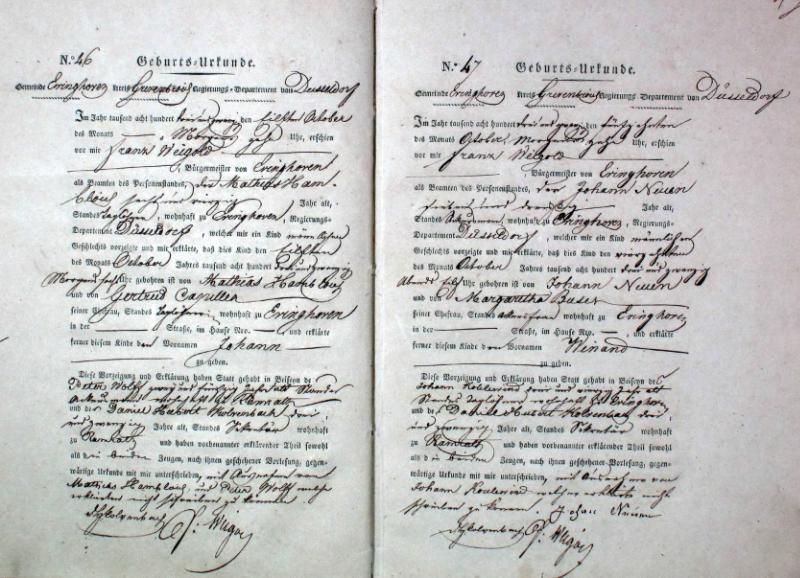 N.º 46 Geburts-Urkunde.
Gemeinde Eringhoven Kreis Grevenbroich Regierungs-Departement von Düsseldorf
Im Jahr tausend acht hundert drei und zwanzig den eilften October
des Monats — Morgens zehn Uhr, erschien
vor mir Franz Weigold
Bürgermeister von Eringhoven
als Beamten des Personenstandes, der Mathias Ham-
bloch und vierzig Jahre alt,
Standes Taglöhner, wohnhaft zu Eringhoven, Regierungs-
Departement Düsseldorf, welcher mir ein Kind männlichen
Geschlechts vorzeigte und mir erklärte, daß dies Kind den eilften
des Monats October Jahres tausend acht hundert drei und zwanzig
Morgens Uhr gebohren ist von Mathias Hambloch
und von Gertrud Capellen
seiner Ehefrau, Standes Taglöhnerin wohnhaft zu Eringhoven
in der — Straße, im Hause Nro. — und erklärte
ferner diesem Kinde den Vornamen Johann
zu geben.
Diese Vorzeigung und Erklärung haben Statt gehabt in Beiseyn des
Peter Wolff zwei und fünfzig Jahre alt Standes
Ackersmann wohnhaft zu Ramrath
und des Daniel Hubert Kolvenbach drei
und zwanzig Jahre alt, Standes Sekretär wohnhaft
zu Ramrath und haben vorbenannter erklärender Theil sowohl
als die beiden Zeugen, nach ihnen geschehener Vorlesung, gegen-
wärtige Urkunde mit mir unterschrieben, mit Ausnahme von
Mathias Hambloch und Peter Wolff welche
erklärten nicht schreiben zu können.
DHKolvenbach F. Weigold
N.º 47 Geburts-Urkunde.
Gemeinde Eringhoven Kreis Grevenbroich Regierungs-Departement von Düsseldorf
Im Jahr tausend acht hundert drei und zwanzig den fünfzehnten
des Monats October Morgens zehn Uhr, erschien
vor mir Franz Weigold
Bürgermeister von Eringhoven
als Beamten des Personenstandes, der Johann Neuen
und dreißig Jahre alt,
Standes Ackersmann, wohnhaft zu Eringhoven, Regierungs-
Departement Düsseldorf, welcher mir ein Kind männlichen
Geschlechts vorzeigte und mir erklärte, daß dies Kind den vierzehnten
des Monats October Jahres tausend acht hundert drei und zwanzig
Abends eilf Uhr gebohren ist von Johann Neuen
und von Margaretha
seiner Ehefrau, Standes Ackersfrau wohnhaft zu Eringhoven
in der — Straße, im Hause Nro. — und erklärte
ferner diesem Kinde den Vornamen Winand
zu geben.
Diese Vorzeigung und Erklärung haben Statt gehabt in Beiseyn des
Johann und Jahre alt
Standes Taglöhner wohnhaft zu Eringhoven
und des Daniel Hubert Kolvenbach drei
und zwanzig Jahre alt, Standes Sekretär wohnhaft
zu Ramrath und haben vorbenannter erklärender Theil sowohl
als die beiden Zeugen, nach ihnen geschehener Vorlesung, gegen-
wärtige Urkunde mit mir unterschrieben, mit Ausnahme von
Johann welcher erklärte nicht
schreiben zu können. Johan Neuen
DHKolvenbach F. Weigold